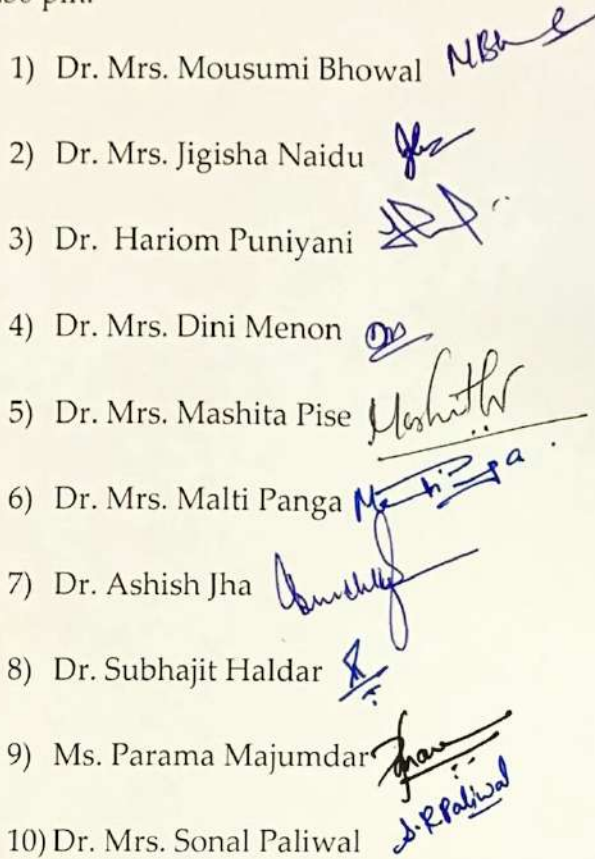 1) Dr. Mrs. Mousumi Bhowal
2) Dr. Mrs. Jigisha Naidu
3) Dr. Hariom Puniyani
4) Dr. Mrs. Dini Menon
5) Dr. Mrs. Mashita Pise
6) Dr. Mrs. Malti Panga
7) Dr. Ashish Jha
8) Dr. Subhajit Haldar
9) Ms. Parama Majumdar
10) Dr. Mrs. Sonal Paliwal S.R Paliwal